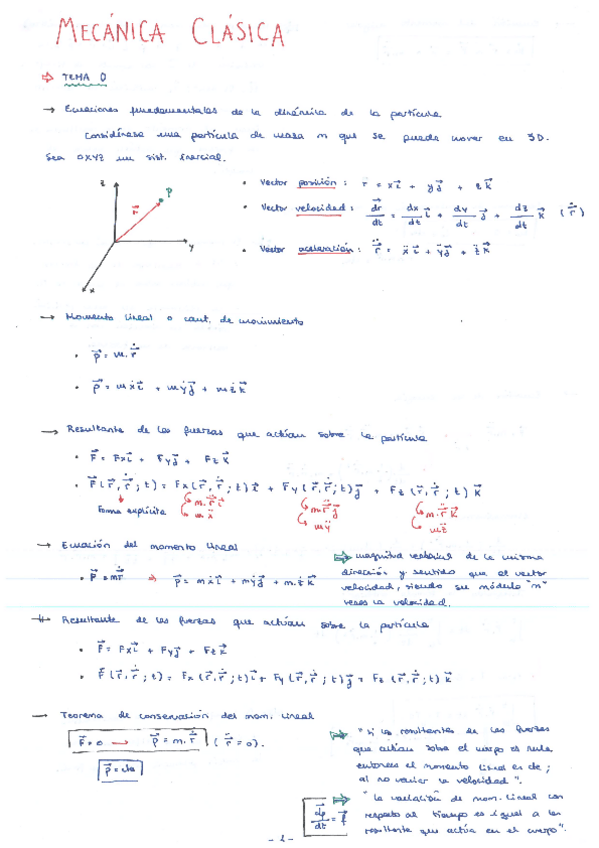 MECÁNICA CLÁSICA
⇒ TEMA 0
→ Ecuaciones fundamentales de la dinámica de la partícula
Considérese una partícula de masa m que se puede mover en 3D.
Sea OXYZ un sist. inercial.
z
P
r⃗
y
x
• Vector posición: r = xi⃗ + yj⃗ + zk⃗
• Vector velocidad: dr⃗/dt = dx/dt i⃗ + dy/dt j⃗ + dz/dt k⃗ (ṙ⃗)
• Vector aceleración: r̈⃗ = ẍi⃗ + ÿj⃗ + z̈k⃗
→ Momento lineal o cant. de movimiento
• p⃗ = m.ṙ⃗
• p⃗ = mẋi⃗ + mẏj⃗ + mżk⃗
→ Resultante de las fuerzas que actúan sobre la partícula
• F⃗ = Fxi⃗ + Fyj⃗ + Fzk⃗
• F⃗(r⃗, ṙ⃗; t) = Fx(r⃗, ṙ⃗; t)i⃗ + Fy(r⃗, ṙ⃗; t)j⃗ + Fz(r⃗, ṙ⃗; t)k⃗
forma explícita
m.r̈⃗ i⃗
m.ẍ
m.r̈⃗ j⃗
mÿ
m.r̈⃗ k⃗
m.z̈
→ Ecuación del momento lineal
• p⃗ = mṙ⃗ ⇒ p⃗ = mẋi⃗ + mẏj⃗ + m.żk⃗
⇒ magnitud vectorial de la misma
dirección y sentido que el vector
velocidad, siendo su módulo "m"
veces la velocidad.
Resultante de las fuerzas que actúan sobre la partícula
• F⃗ = Fxi⃗ + Fyj⃗ + Fzk⃗
• F⃗(r⃗, ṙ⃗; t) = Fx(r⃗, ṙ⃗; t)i⃗ + Fy(r⃗, ṙ⃗; t)j⃗ + Fz(r⃗, ṙ⃗; t)k⃗
→ Teorema de conservación del mom. lineal
F⃗ = 0 → p⃗ = m.ṙ⃗ (r̈⃗ = 0).
p⃗ = cte
⇒ "Si las resultantes de las fuerzas
que actúan sobre el cuerpo es nula,
entonces el momento lineal es cte;
al no variar la velocidad".
⇒ "La variación de mom. lineal con
respecto al tiempo es igual a la
resultante que actúa en el cuerpo".
dp⃗/dt = F⃗
- 1 -